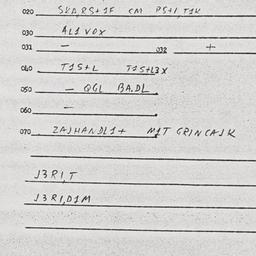 020 SKA,RS+1F CM PS+I,T1K
030 AL1 VOX
031 – 032 +
040 T1S+L T1S+L3X
050 – QGL BA.DL
060 –
070 ZAJHANDL1+ M1T GRINCAJK
J3RI,T
J3RI,D1M